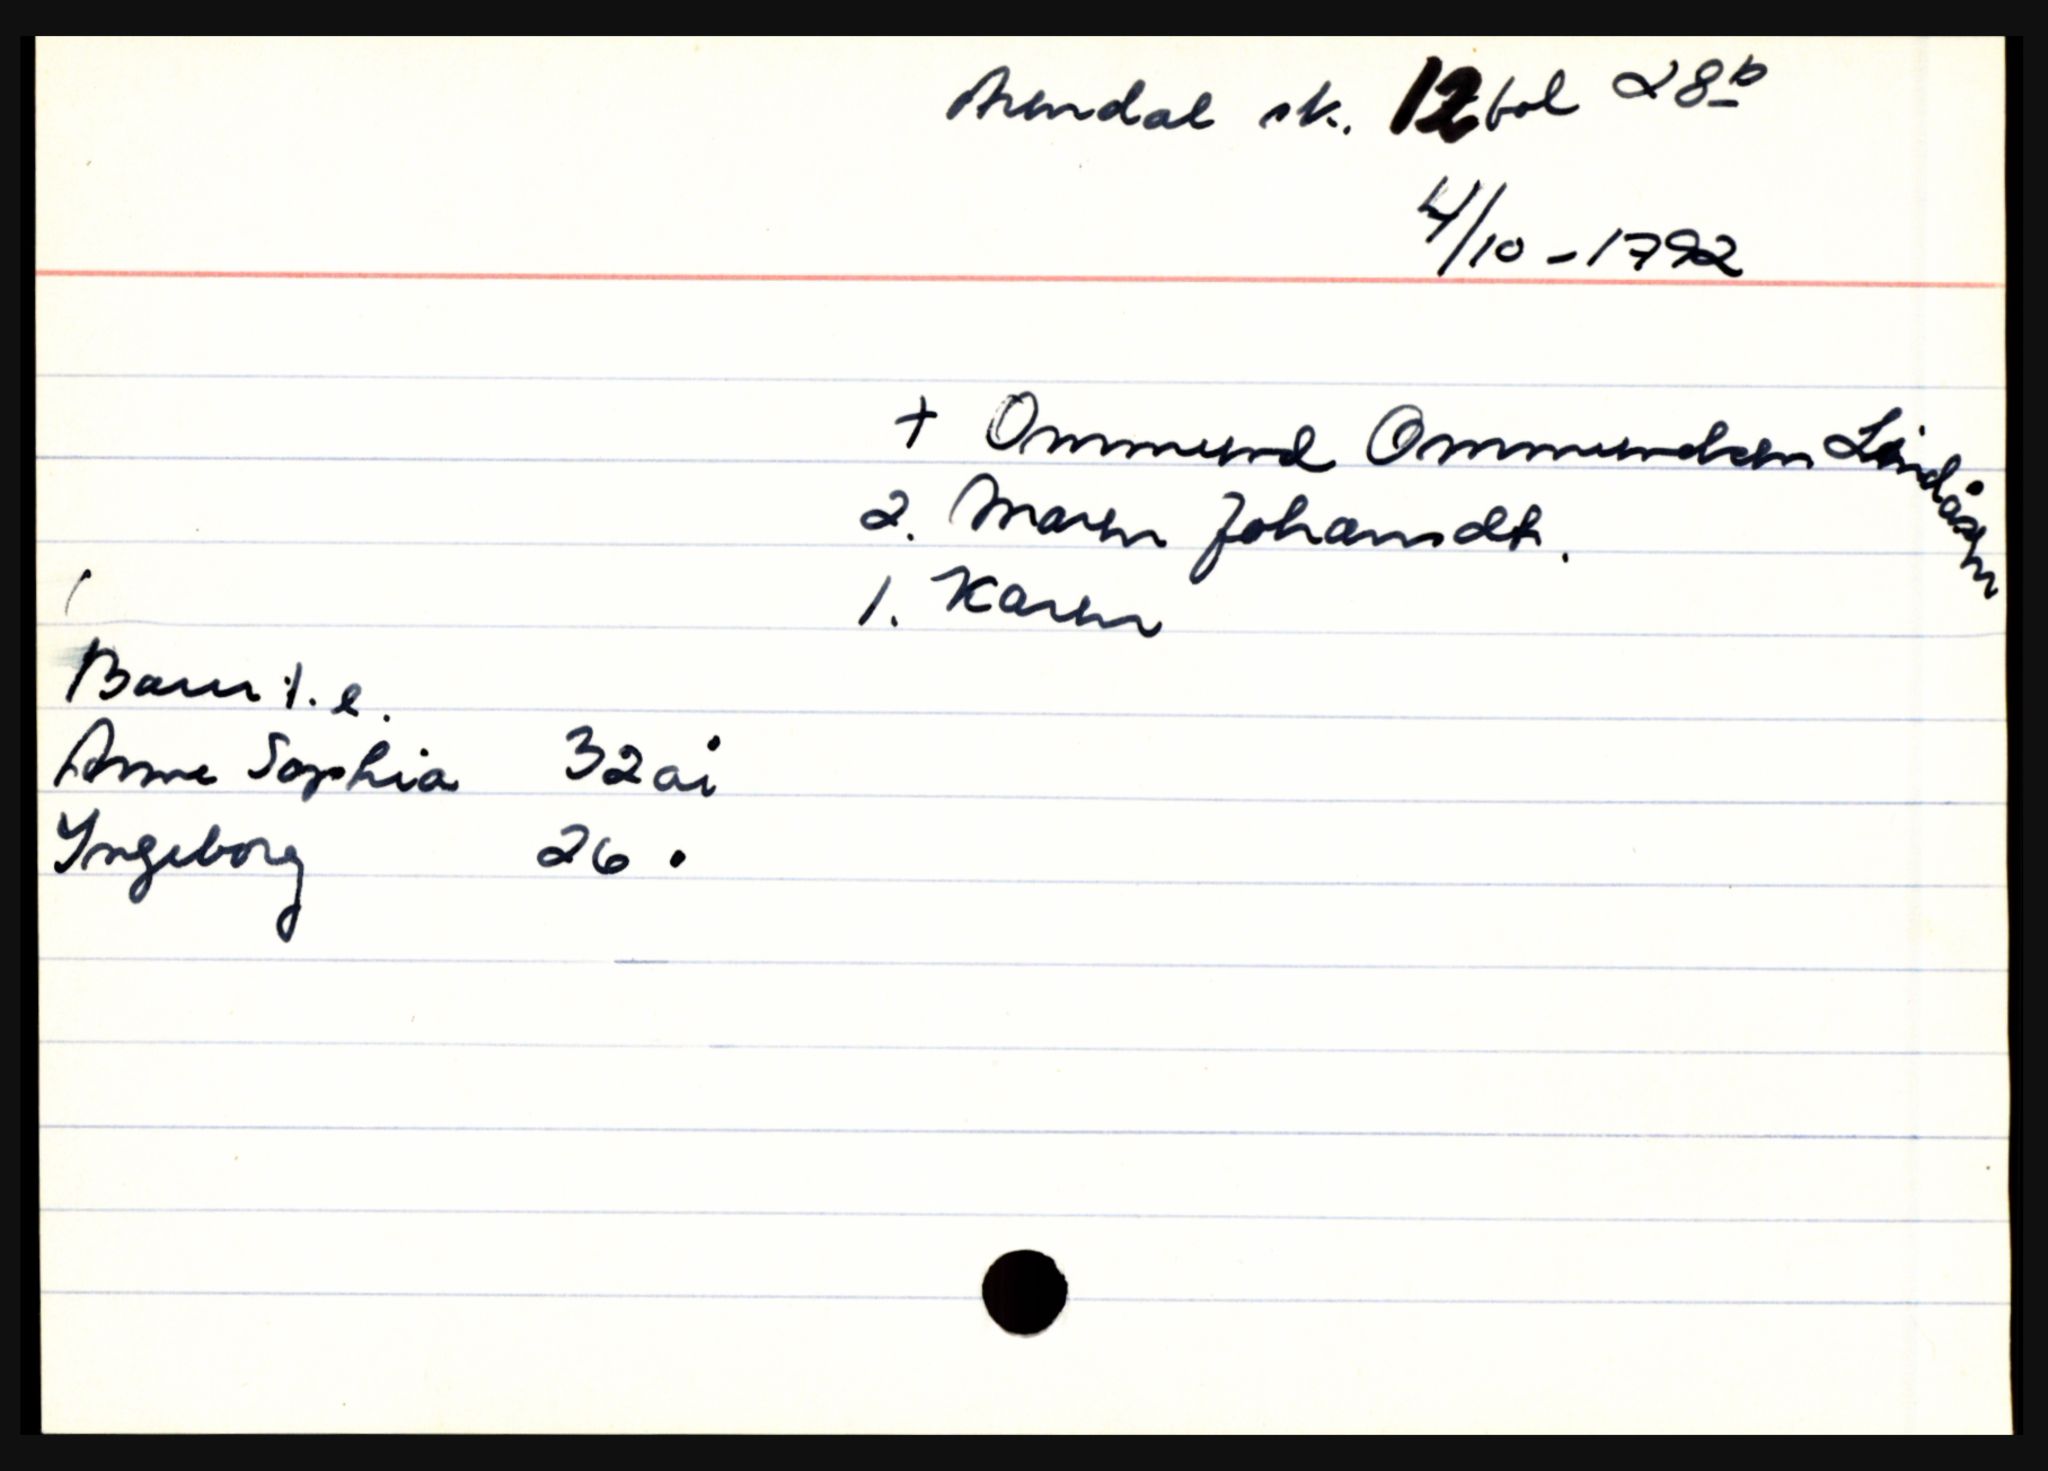 Arendal sk. 12 fol 28b
4/10 - 1792
+ Ommund Ommundsen Lindåsen
2. Maren Johansdt.
1. Karen
Barn 1. e.
Anne Sophia 32 ai
Yngeborg 26 •